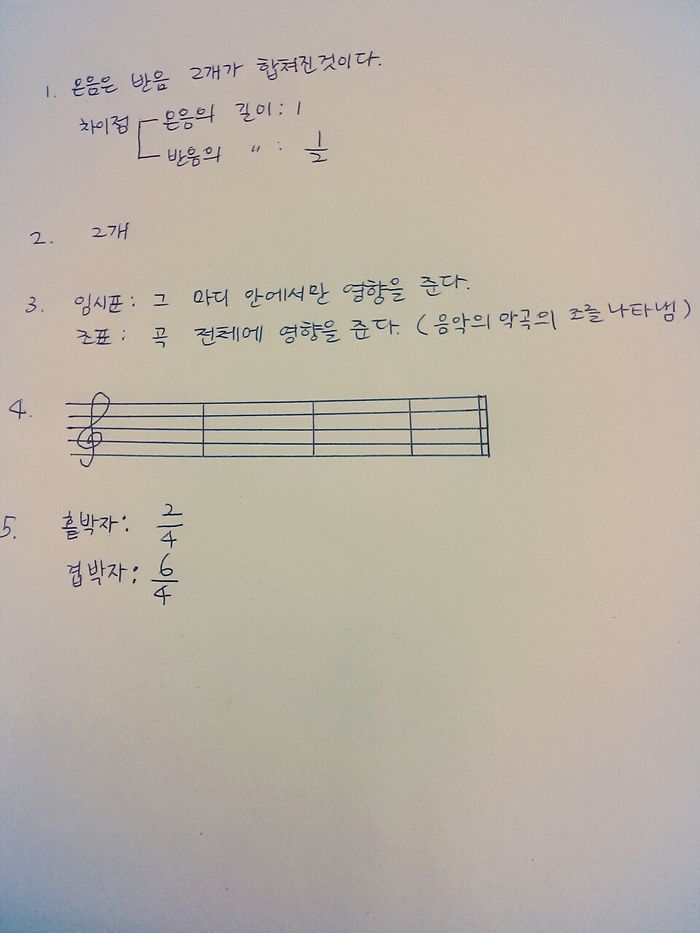 1. 온음은 반음 2개가 합쳐진것이다.
차이점 온음의 길이: 1
반음의 〃 : 1/2
2. 2개
3. 임시표: 그 마디 안에서만 영향을 준다.
조표: 곡 전체에 영향을 준다. (음악의 악곡의 조를 나타냄)
4.
5. 홑박자: 2/4
겹박자: 6/4